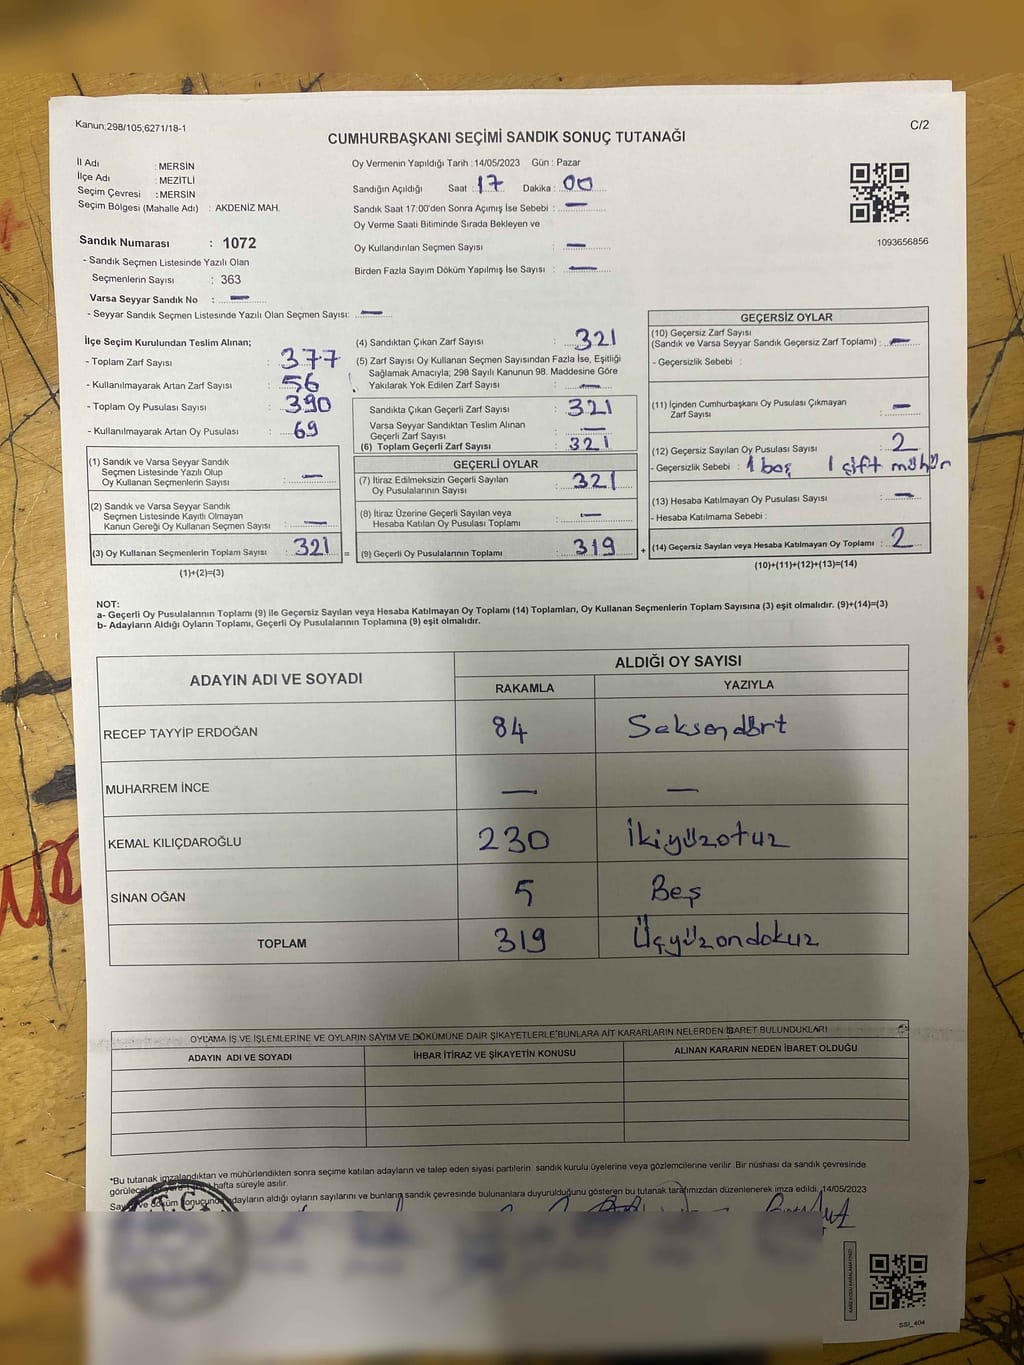 Kanun;298/105;6271/18-1
C/2
CUMHURBAŞKANI SEÇİMİ SANDIK SONUÇ TUTANAĞI
İl Adı : MERSİN
İlçe Adı : MEZİTLİ
Seçim Çevresi : MERSİN
Seçim Bölgesi (Mahalle Adı) : AKDENİZ MAH.
Oy Vermenin Yapıldığı Tarih : 14/05/2023 Gün : Pazar
Sandığın Açıldığı Saat : 17 Dakika : 00
Sandık Saat 17:00'den Sonra Açımış İse Sebebi : —
Oy Verme Saati Bitiminde Sırada Bekleyen ve
Oy Kullandırılan Seçmen Sayısı : —
Birden Fazla Sayım Döküm Yapılmış İse Sayısı : —
1093656856
Sandık Numarası : 1072
- Sandık Seçmen Listesinde Yazılı Olan
Seçmenlerin Sayısı : 363
Varsa Seyyar Sandık No : —
- Seyyar Sandık Seçmen Listesinde Yazılı Olan Seçmen Sayısı: —
İlçe Seçim Kurulundan Teslim Alınan;
- Toplam Zarf Sayısı : 377
- Kullanılmayarak Artan Zarf Sayısı : 56
- Toplam Oy Pusulası Sayısı : 390
- Kullanılmayarak Artan Oy Pusulası : 69
(1) Sandık ve Varsa Seyyar Sandık
Seçmen Listesinde Yazılı Olup
Oy Kullanan Seçmenlerin Sayısı : —
(2) Sandık ve Varsa Seyyar Sandık
Seçmen Listesinde Kayıtlı Olmayan
Kanun Gereği Oy Kullanan Seçmen Sayısı : —
(3) Oy Kullanan Seçmenlerin Toplam Sayısı : 321 =
(1)+(2)=(3)
(4) Sandıktan Çıkan Zarf Sayısı : 321
(5) Zarf Sayısı Oy Kullanan Seçmen Sayısından Fazla İse, Eşitliği
Sağlamak Amacıyla; 298 Sayılı Kanunun 98. Maddesine Göre
Yakılarak Yok Edilen Zarf Sayısı : —
Sandıkta Çıkan Geçerli Zarf Sayısı : 321
Varsa Seyyar Sandıktan Teslim Alınan
Geçerli Zarf Sayısı : —
(6) Toplam Geçerli Zarf Sayısı : 321
GEÇERLİ OYLAR
(7) İtiraz Edilmeksizin Geçerli Sayılan
Oy Pusulalarının Sayısı : 321
(8) İtiraz Üzerine Geçerli Sayılan veya
Hesaba Katılan Oy Pusulası Toplamı : —
(9) Geçerli Oy Pusulalarının Toplamı : 319 +
GEÇERSİZ OYLAR
(10) Geçersiz Zarf Sayısı
(Sandık ve Varsa Seyyar Sandık Geçersiz Zarf Toplamı) : —
- Geçersizlik Sebebi :
(11) İçinden Cumhurbaşkanı Oy Pusulası Çıkmayan
Zarf Sayısı : —
(12) Geçersiz Sayılan Oy Pusulası Sayısı : 2
- Geçersizlik Sebebi : 1 boş 1 çift mühür
(13) Hesaba Katılmayan Oy Pusulası Sayısı : —
- Hesaba Katılmama Sebebi :
(14) Geçersiz Sayılan veya Hesaba Katılmayan Oy Toplamı : 2
(10)+(11)+(12)+(13)=(14)
NOT:
a- Geçerli Oy Pusulalarının Toplamı (9) ile Geçersiz Sayılan veya Hesaba Katılmayan Oy Toplamı (14) Toplamları, Oy Kullanan Seçmenlerin Toplam Sayısına (3) eşit olmalıdır. (9)+(14)=(3)
b- Adayların Aldığı Oyların Toplamı, Geçerli Oy Pusulalarının Toplamına (9) eşit olmalıdır.
ADAYIN ADI VE SOYADI
ALDIĞI OY SAYISI
RAKAMLA YAZIYLA
RECEP TAYYİP ERDOĞAN 84 Seksendört
MUHARREM İNCE — —
KEMAL KILIÇDAROĞLU 230 İkiyüzotuz
SİNAN OĞAN 5 Beş
TOPLAM 319 Üçyüzondokuz
OYLAMA İŞ VE İŞLEMLERİNE VE OYLARIN SAYIM VE DÖKÜMÜNE DAİR ŞİKAYETLERLE BUNLARA AİT KARARLARIN NELERDEN İBARET BULUNDUKLARI
ADAYIN ADI VE SOYADI İHBAR İTİRAZ VE ŞİKAYETİN KONUSU ALINAN KARARIN NEDEN İBARET OLDUĞU
*Bu tutanak imzalandıktan ve mühürlendikten sonra seçime katılan adayların ve talep eden siyasi partilerin sandık kurulu üyelerine veya gözlemcilerine verilir .Bir nüshası da sandık çevresinde
hafta süreyle asılır.
adayların aldığı oyların sayılarını ve bunların sandık çevresinde bulunanlara duyurulduğunu gösteren bu tutanak tarafımızdan düzenlenerek imza edildi. 14/05/2023
SSI_404